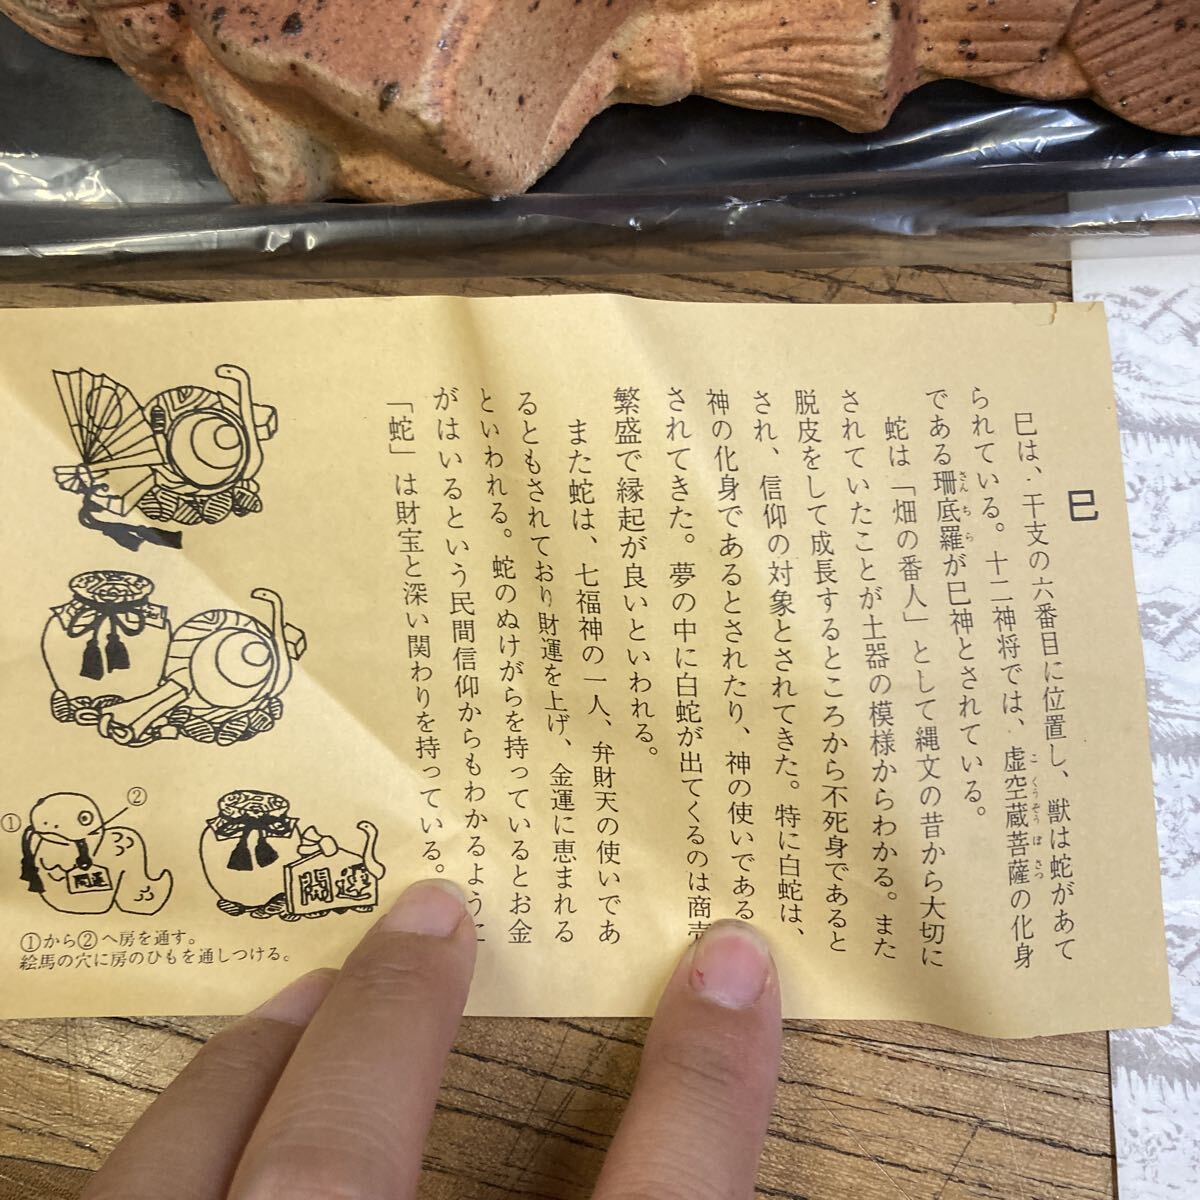 巳
巳は、干支の六番目に位置し、獣は蛇があて
られている。十二神将では、虚空蔵菩薩の化身
こくうぞうぼさつ
である珊底羅が巳神とされている。
さんちら
蛇は「畑の番人」として縄文の昔から大切に
されていたことが土器の模様からわかる。また
脱皮をして成長するところから不死身であると
され、信仰の対象とされてきた。特に白蛇は、
神の化身であるとされたり、神の使いである
されてきた。夢の中に白蛇が出てくるのは商売
繁盛で縁起が良いといわれる。
また蛇は、七福神の一人、弁財天の使いであ
るともされており財運を上げ、金運に恵まれる
といわれる。蛇のぬけがらを持っているとお金
がはいるという民間信仰からもわかるように
「蛇」は財宝と深い関わりを持っている。
①
②
開運
開運
①から②へ房を通す。
絵馬の穴に房のひもを通しつける。